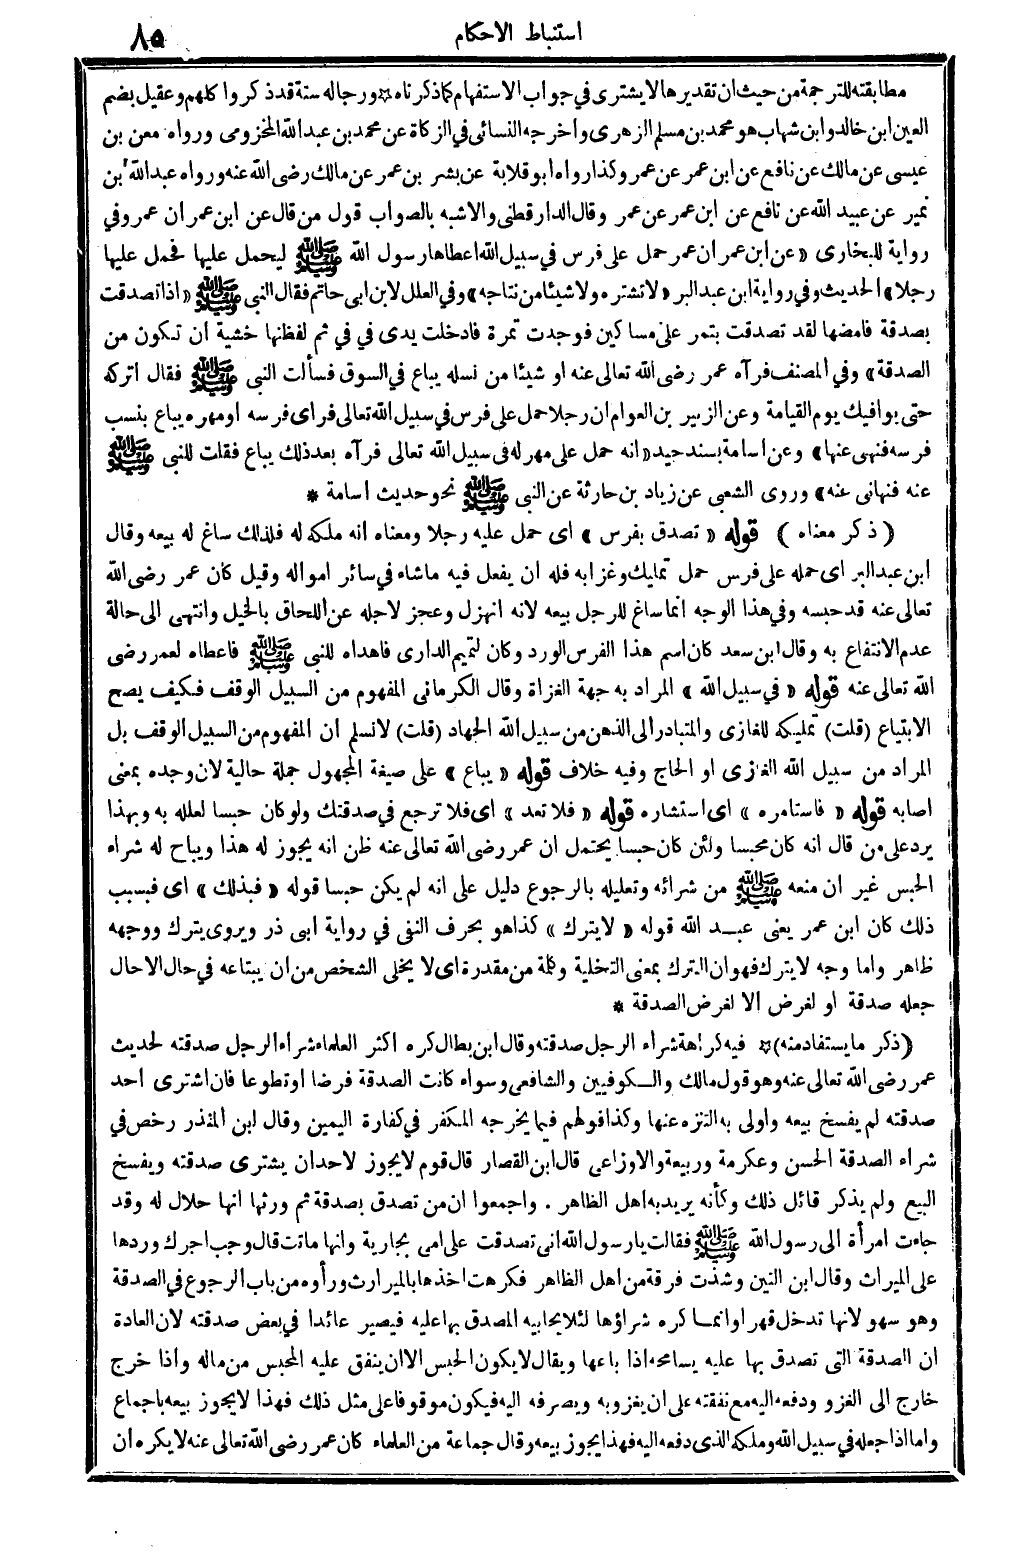 استنباط الاحكام
٨٥
مطابقته للترجمة من حيث ان تقديرها لا يشترى فى جواب الاستفهام كما ذكرناه ✩ ورجاله ستة قد ذكروا كلهم وعقيل بضم
العين ابن خالد وابن شهاب هو محمد بن مسلم الزهرى واخرجه النسائى فى الزكاة عن محمد بن عبد الله المخزومى ورواه معن بن
عيسى عن مالك عن نافع عن ابن عمر عن عمر وكذا رواه ابو قلابة عن بشر بن عمر عن مالك رضى الله عنه ورواه عبد الله بن
نمير عن عبيد الله عن نافع عن ابن عمر عن عمر وقال الدارقطنى والاشبه بالصواب قول من قال عن ابن عمر ان عمر وفي
رواية للبخارى «عن ابن عمر ان عمر حمل على فرس في سبيل الله اعطاها رسول الله ﷺ ليحمل عليها فحمل عليها
رجلا» الحديث وفي رواية ابن عبد البر «لا تشتره ولا شيئا من نتاجه» وفي العلل لابن ابى حاتم فقال النبى ﷺ «اذا تصدقت
بصدقة فامضها لقد تصدقت بتمر على مساكين فوجدت تمرة فادخلت يدى فى في ثم لفظتها خشية ان تكون من
الصدقة» وفي المصنف فرآه عمر رضى الله تعالى عنه او شيئا من نسله يباع في السوق فسألت النبى ﷺ فقال اتركه
حتى يوافيك يوم القيامة وعن الزبير بن العوام ان رجلا حمل على فرس في سبيل الله تعالى فراى فرسه او مهره يباع بنسب
فرسه فنهى عنها» وعن اسامة بسند جيد «انه حمل على مهر له فى سبيل الله تعالى فرآه بعد ذلك يباع فقلت للنبى ﷺ
عنه فنهانى عنه» وروى الشعبى عن زياد بن حارثة عن النبى ﷺ نحو حديث اسامة *
(ذكر معناه) قوله «تصدق بفرس» اى حمل عليه رجلا ومعناه انه ملكه له فلذلك ساغ له بيعه وقال
ابن عبد البر اى حمله على فرس حمل تمليك وغزا به فله ان يفعل فيه ما شاء في سائر امواله وقيل كان عمر رضى الله
تعالى عنه قد حبسه وفي هذا الوجه انما ساغ للرجل بيعه لانه انهزل وعجز لاجله عن اللحاق بالخيل وانتهى الى حالة
عدم الانتفاع به وقال ابن سعد كان اسم هذا الفرس الورد وكان لتميم الدارى فاهداه للنبى ﷺ فاعطاه لعمر رضى
الله تعالى عنه قوله «في سبيل الله» المراد به جهة الغزاة وقال الكرمانى المفهوم من السبيل الوقف فكيف يصح
الابتياع (قلت) تمليكه للغازى والمتبادر الى الذهن من سبيل الله الجهاد (قلت) لا نسلم ان المفهوم من السبيل الوقف بل
المراد من سبيل الله الغازى او الحاج وفيه خلاف قوله «يباع» على صيغة المجهول جملة حالية لان وجده بمعنى
اصابه قوله «فاستامره» اى استشاره قوله «فلا تعد» اى فلا ترجع في صدقتك ولو كان حبسا لعلله به وبهذا
يرد على من قال انه كان محبسا ولئن كان حبسا يحتمل ان عمر رضى الله تعالى عنه ظن انه يجوز له هذا ويباح له شراء
الحبس غير ان منعه ﷺ من شرائه وتعليله بالرجوع دليل على انه لم يكن حبسا قوله «فبذلك» اى فبسبب
ذلك كان ابن عمر يعنى عبد الله قوله «لا يترك» كذا هو بحرف النفى في رواية ابى ذر ويروى يترك ووجهه
ظاهر واما وجه لا يترك فهو ان الترك بمعنى التخلية وكلمة من مقدرة اى لا يخلى الشخص من ان يبتاعه في حال الا حال
جعله صدقة او لغرض الا لغرض الصدقة *
(ذكر ما يستفاد منه) ✩ فيه كراهة شراء الرجل صدقته وقال ابن بطال كره اكثر العلماء شراء الرجل صدقته لحديث
عمر رضى الله تعالى عنه وهو قول مالك والكوفيين والشافعى وسواء كانت الصدقة فرضا او تطوعا فان اشترى احد
صدقته لم يفسخ بيعه واولى به التنزه عنها وكذا قولهم فيما يخرجه المكفر في كفارة اليمين وقال ابن المنذر رخص في
شراء الصدقة الحسن وعكرمة وربيعة والاوزاعى قال ابن القصار قال قوم لا يجوز لاحد ان يشترى صدقته ويفسخ
البيع ولم يذكر قائل ذلك وكأنه يريد به اهل الظاهر . واجمعوا ان من تصدق بصدقة ثم ورثها انها حلال له وقد
جاءت امرأة الى رسول الله ﷺ فقالت يا رسول الله انى تصدقت على امى بجارية وانها ماتت قال وجب اجرك وردها
على الميراث وقال ابن التين وشذت فرقة من اهل الظاهر فكرهت اخذها بالميراث ورأوه من باب الرجوع في الصدقة
وهو سهو لانها تدخل قهرا وانما كره شراؤها لئلا يحابيه المصدق بها عليه فيصير عائدا في بعض صدقته لان العادة
ان الصدقة التى تصدق بها عليه يسامحه اذا باعها ويقال لا يكون الحبس الا ان ينفق عليه المحبس من ماله واذا خرج
خارج الى الغزو ودفعه اليه مع نفقته على ان يغزو به ويصرفه اليه فيكون موقوفا على مثل ذلك فهذا لا يجوز بيعه باجماع
واما اذا جعله في سبيل الله وملكه الذى دفعه اليه فهذا يجوز بيعه وقال جماعة من العلماء كان عمر رضى الله تعالى عنه لا يكره ان